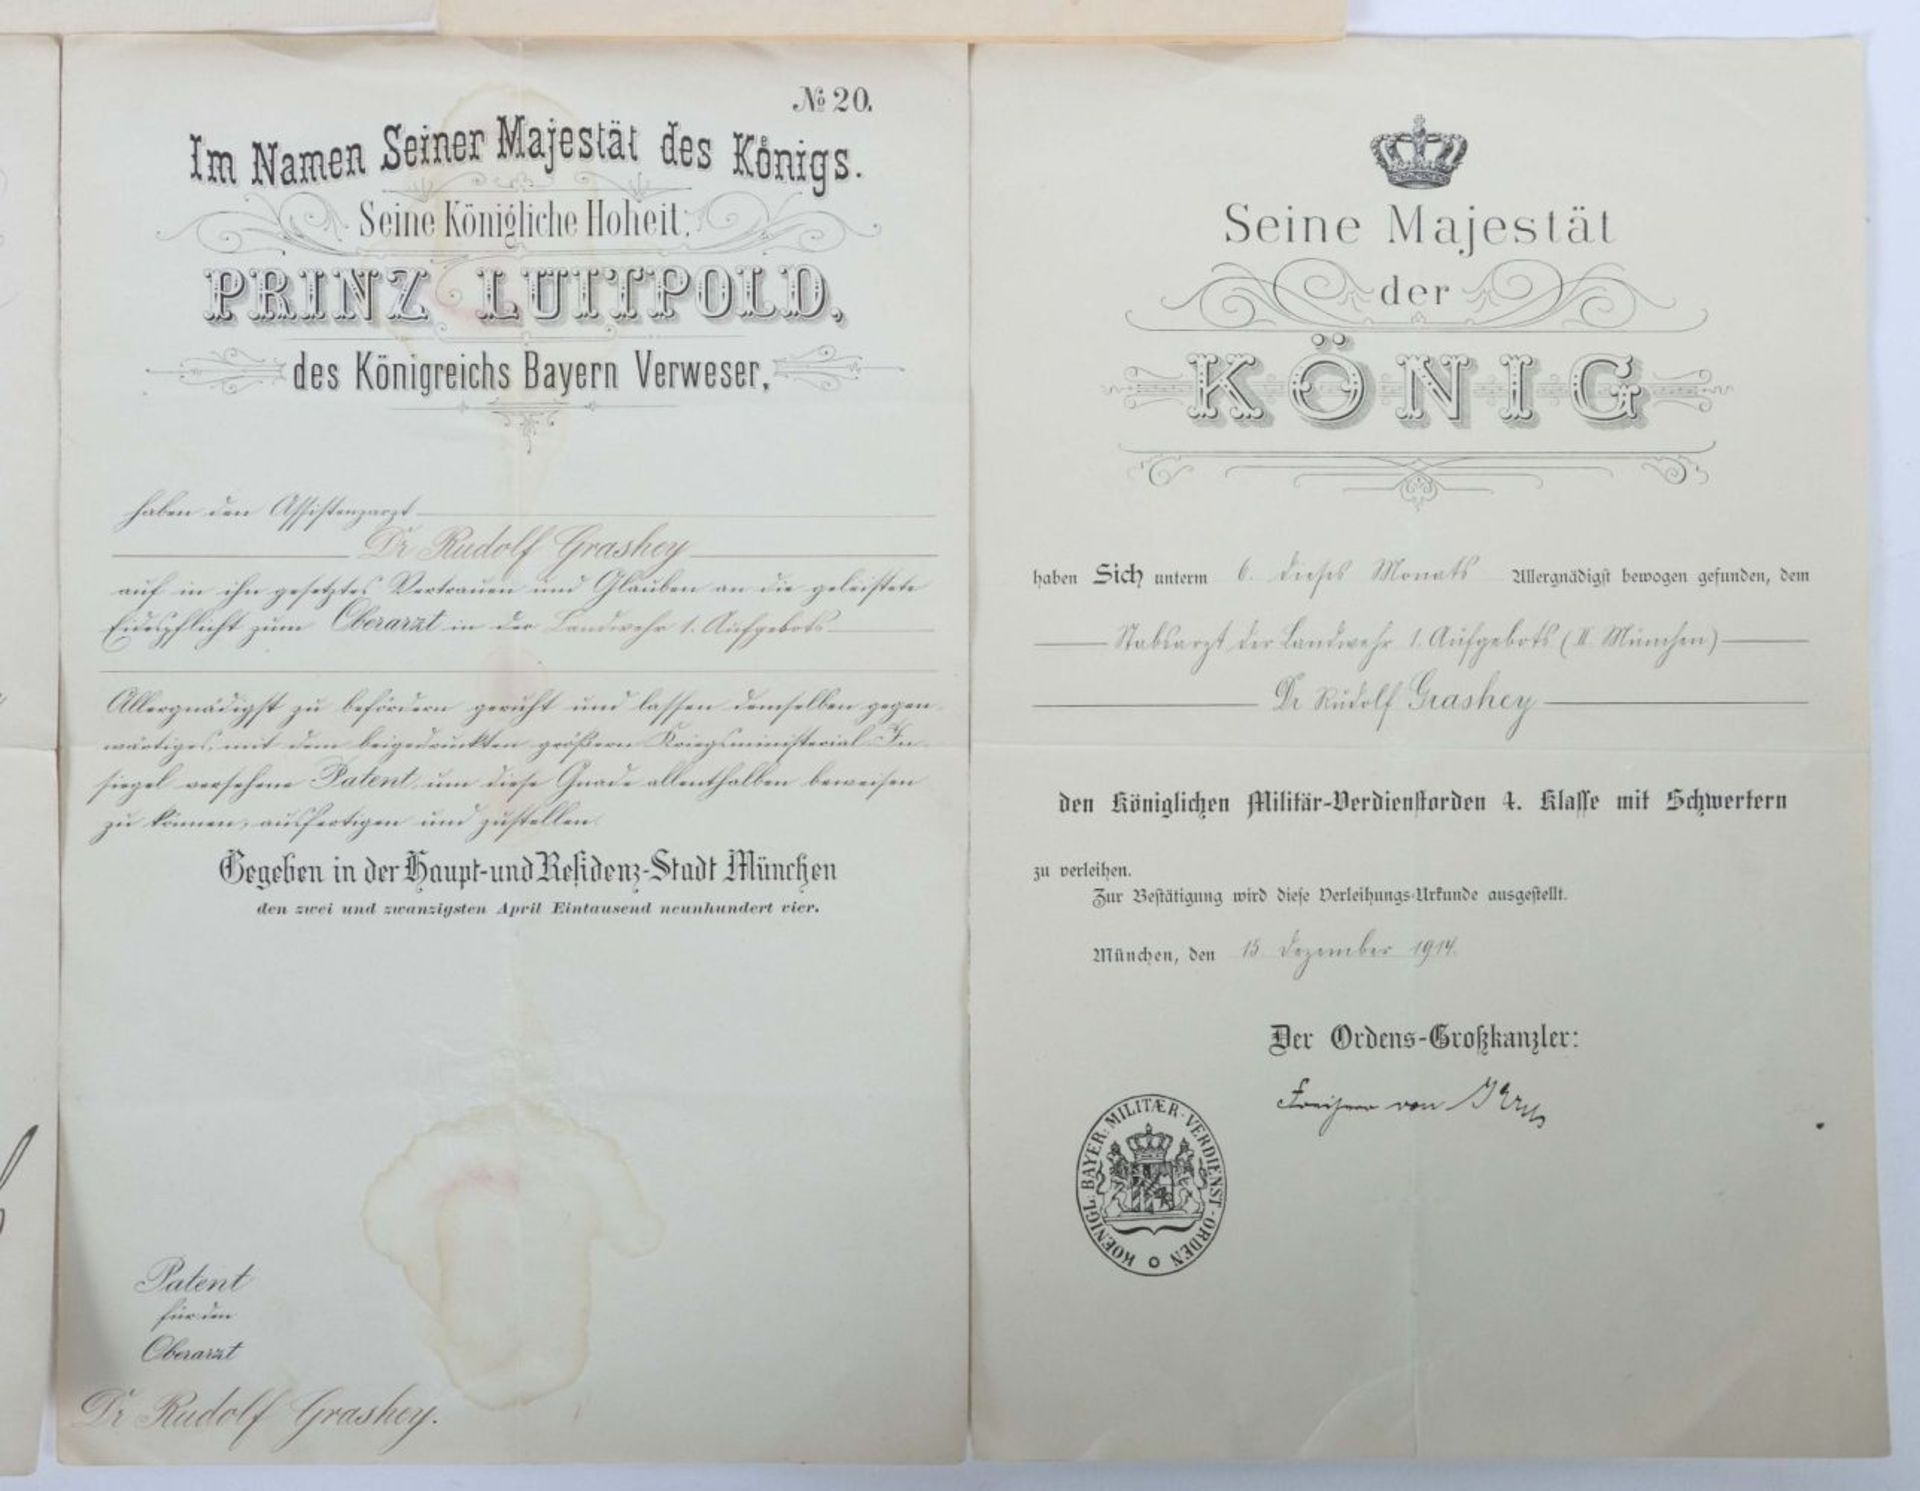 № 20.
Im Namen Seiner Majestät des Königs.
Seine Königliche Hoheit:
PRINZ LUITPOLD,
des Königreichs Bayern Verweser,
haben den Assistenzarzt
Dr Rudolf Grashey
auf in ihn gesetztes Vertrauen und Glauben an die geleistete
Eidespflicht zum Oberarzt in der Landwehr 1. Aufgebots
Allergnädigst zu befördern geruht und lassen demselben gegen-
wärtiges, mit dem beigedruckten größern Kriegsministerial-In-
siegel versehene Patent, um diese Gnade allenthalben beweisen
zu können, ausfertigen und zustellen.
Gegeben in der Haupt-und Residenz-Stadt München
den zwei und zwanzigsten April Eintausend neunhundert vier.
Patent
für den
Oberarzt
Dr Rudolf Grashey.
Seine Majestät
der
KÖNIG
haben Sich unterm 6. dieses Monats Allergnädigst bewogen gefunden, dem
Stabsarzt der Landwehr 1. Aufgebots (II München)
Dr Rudolf Grashey
den Königlichen Militär-Verdienstorden 4. Klasse mit Schwertern
zu verleihen.
Zur Bestätigung wird diese Verleihungs-Urkunde ausgestellt.
München, den 15. Dezember 1914.
Der Ordens-Großkanzler:
Freiherr von
KOENIGL: BAYER: MILITÆR-VERDIENST-ORDEN